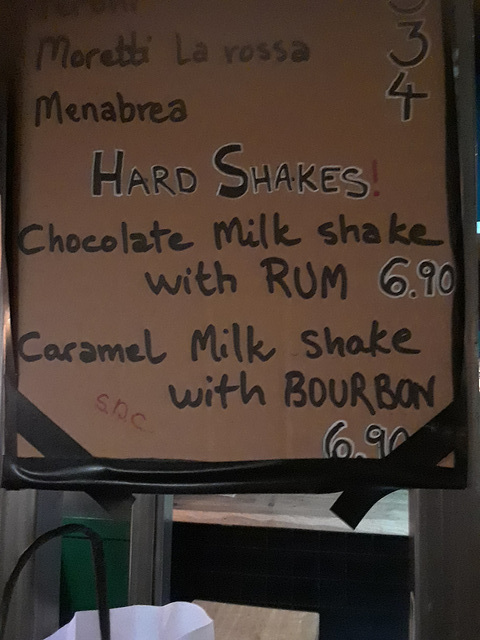 Peroni
Moretti La rossa 3
Menabrea 4
HARD SHAKES!
Chocolate Milk shake
with RUM 6.90
Caramel Milk shake
with BOURBON
s.b.c
6.90